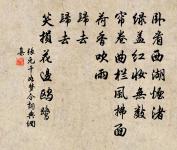 卧看西湖烟渚
绿盖红妆无数
帘卷曲栏风拂面
荷香吹雨
归去
归去
笑损花边鸥鹭
张元干如梦令词典网
集